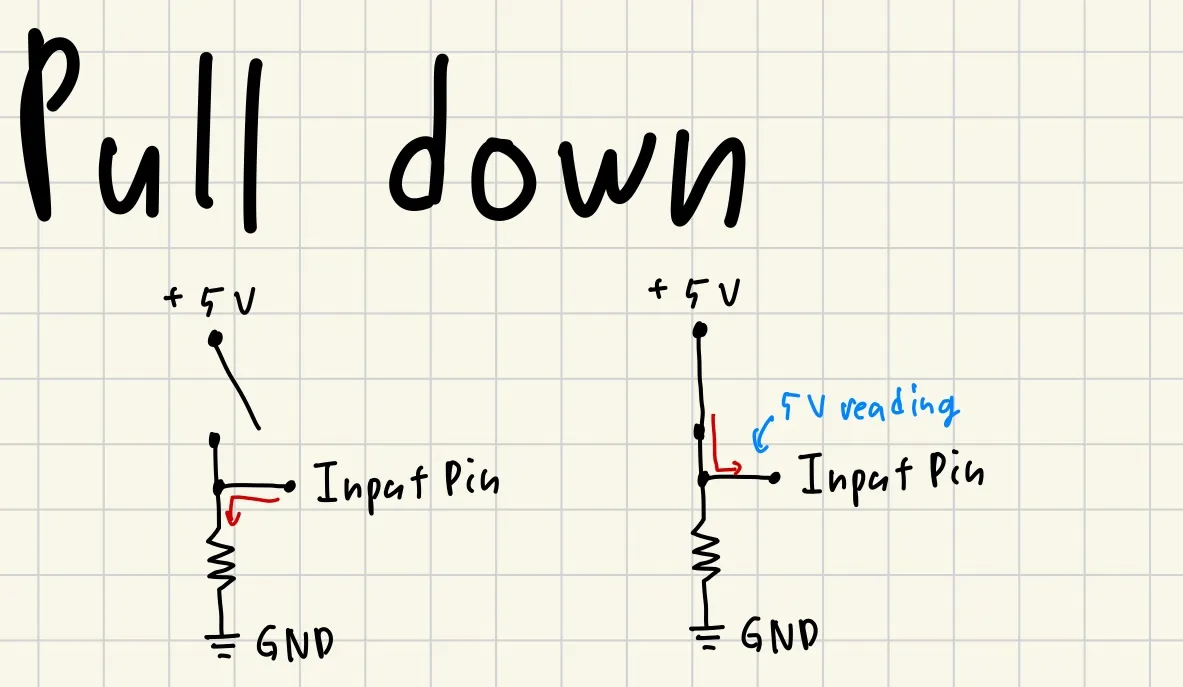 Pull down
+ 5V
+ 5V
5V reading
Input Pin
Input Pin
GND
GND